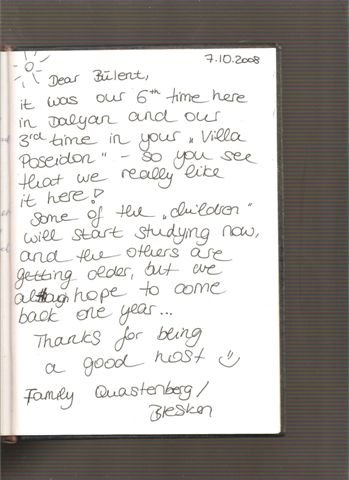 7.10.2008
Dear Bülent,
it was our 6th time here
in Dalyan and our
3rd time in your „Villa
Poseidon" - so you see
that we really like
it here!
Some of the „children"
will start studying now,
and the others are
getting older, but we
hope to come
back one year...
Thanks for being
a good host :)
Family Quastenberg/
Blesken